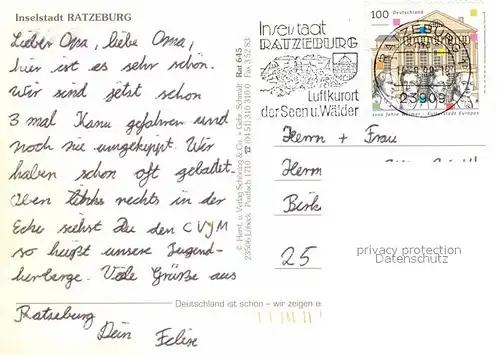 Inselstadt RATZEBURG
Lieber Opa, liebe Oma,
hier ist es sehr schön.
Wir sind jetzt schon
3 mal Kanu gefahren und
noch nie umgekippt. Wir
haben schon oft gebadet.
Oben rechts in der
Ecke siehst Du den CVJM
so heißt unsere Jugend-
herberge. Viele Grüße aus
Ratzeburg
Dein Felix
Deutschland ist schön – wir zeigen e
© Herst. u. Verlag Schöning & Co. + Gebr. Schmidt Rat 645
23506 Lübeck Postfach 1710 ☎ (04 51) 310 310 0 Fax 3 52 83
Inselstadt
RATZEBURG
Luftkurort
der Seen u. Wälder
100 Deutschland
RATZEBURG 1
23909
1100 Jahre Weimar - Kulturstadt Europas
Herrn + Frau
Herm
Birk
25
privacy protection
Datenschutz